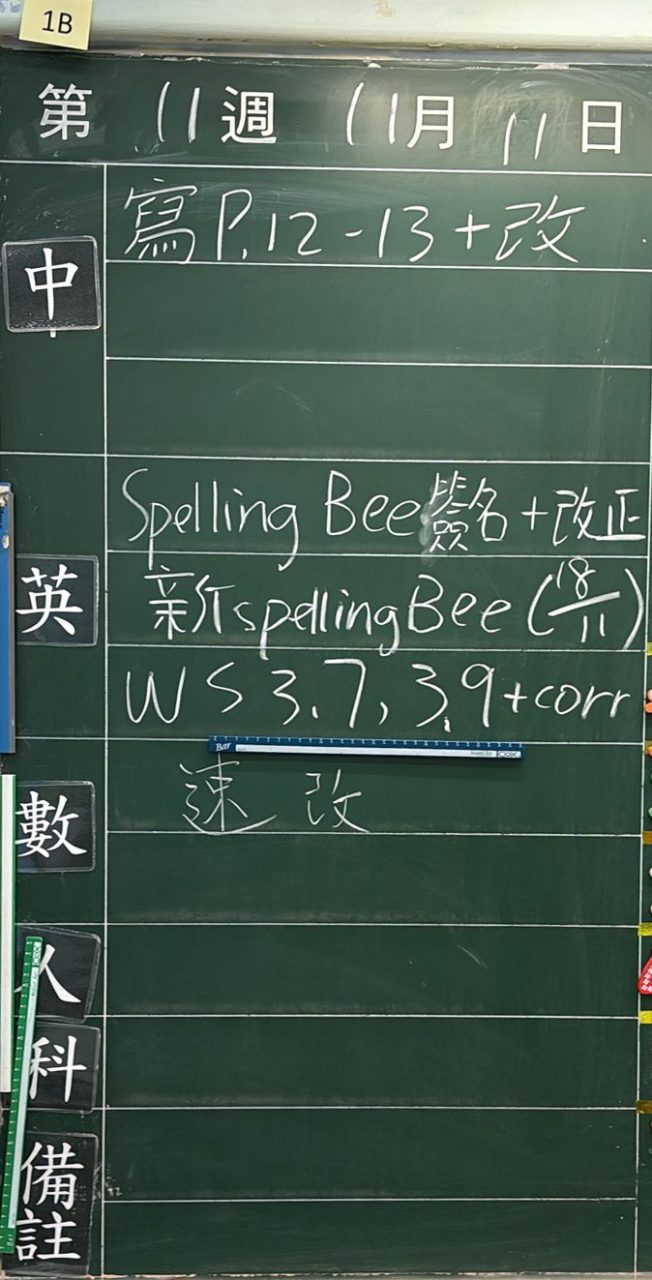 1B
第 11 週 11月 11 日
中
寫 P.12-13+改
英
Spelling Bee簽名+改正
新spellingBee (18/11)
WS 3.7, 3.9+corr
數
速 改
人
科
備註